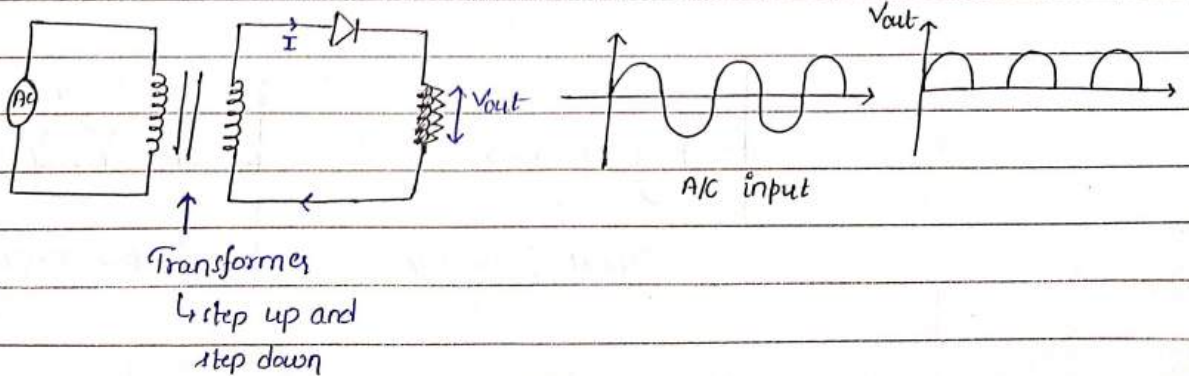 AC
I
Vout
A/C input
Vout
Transformer
↳ step up and
step down